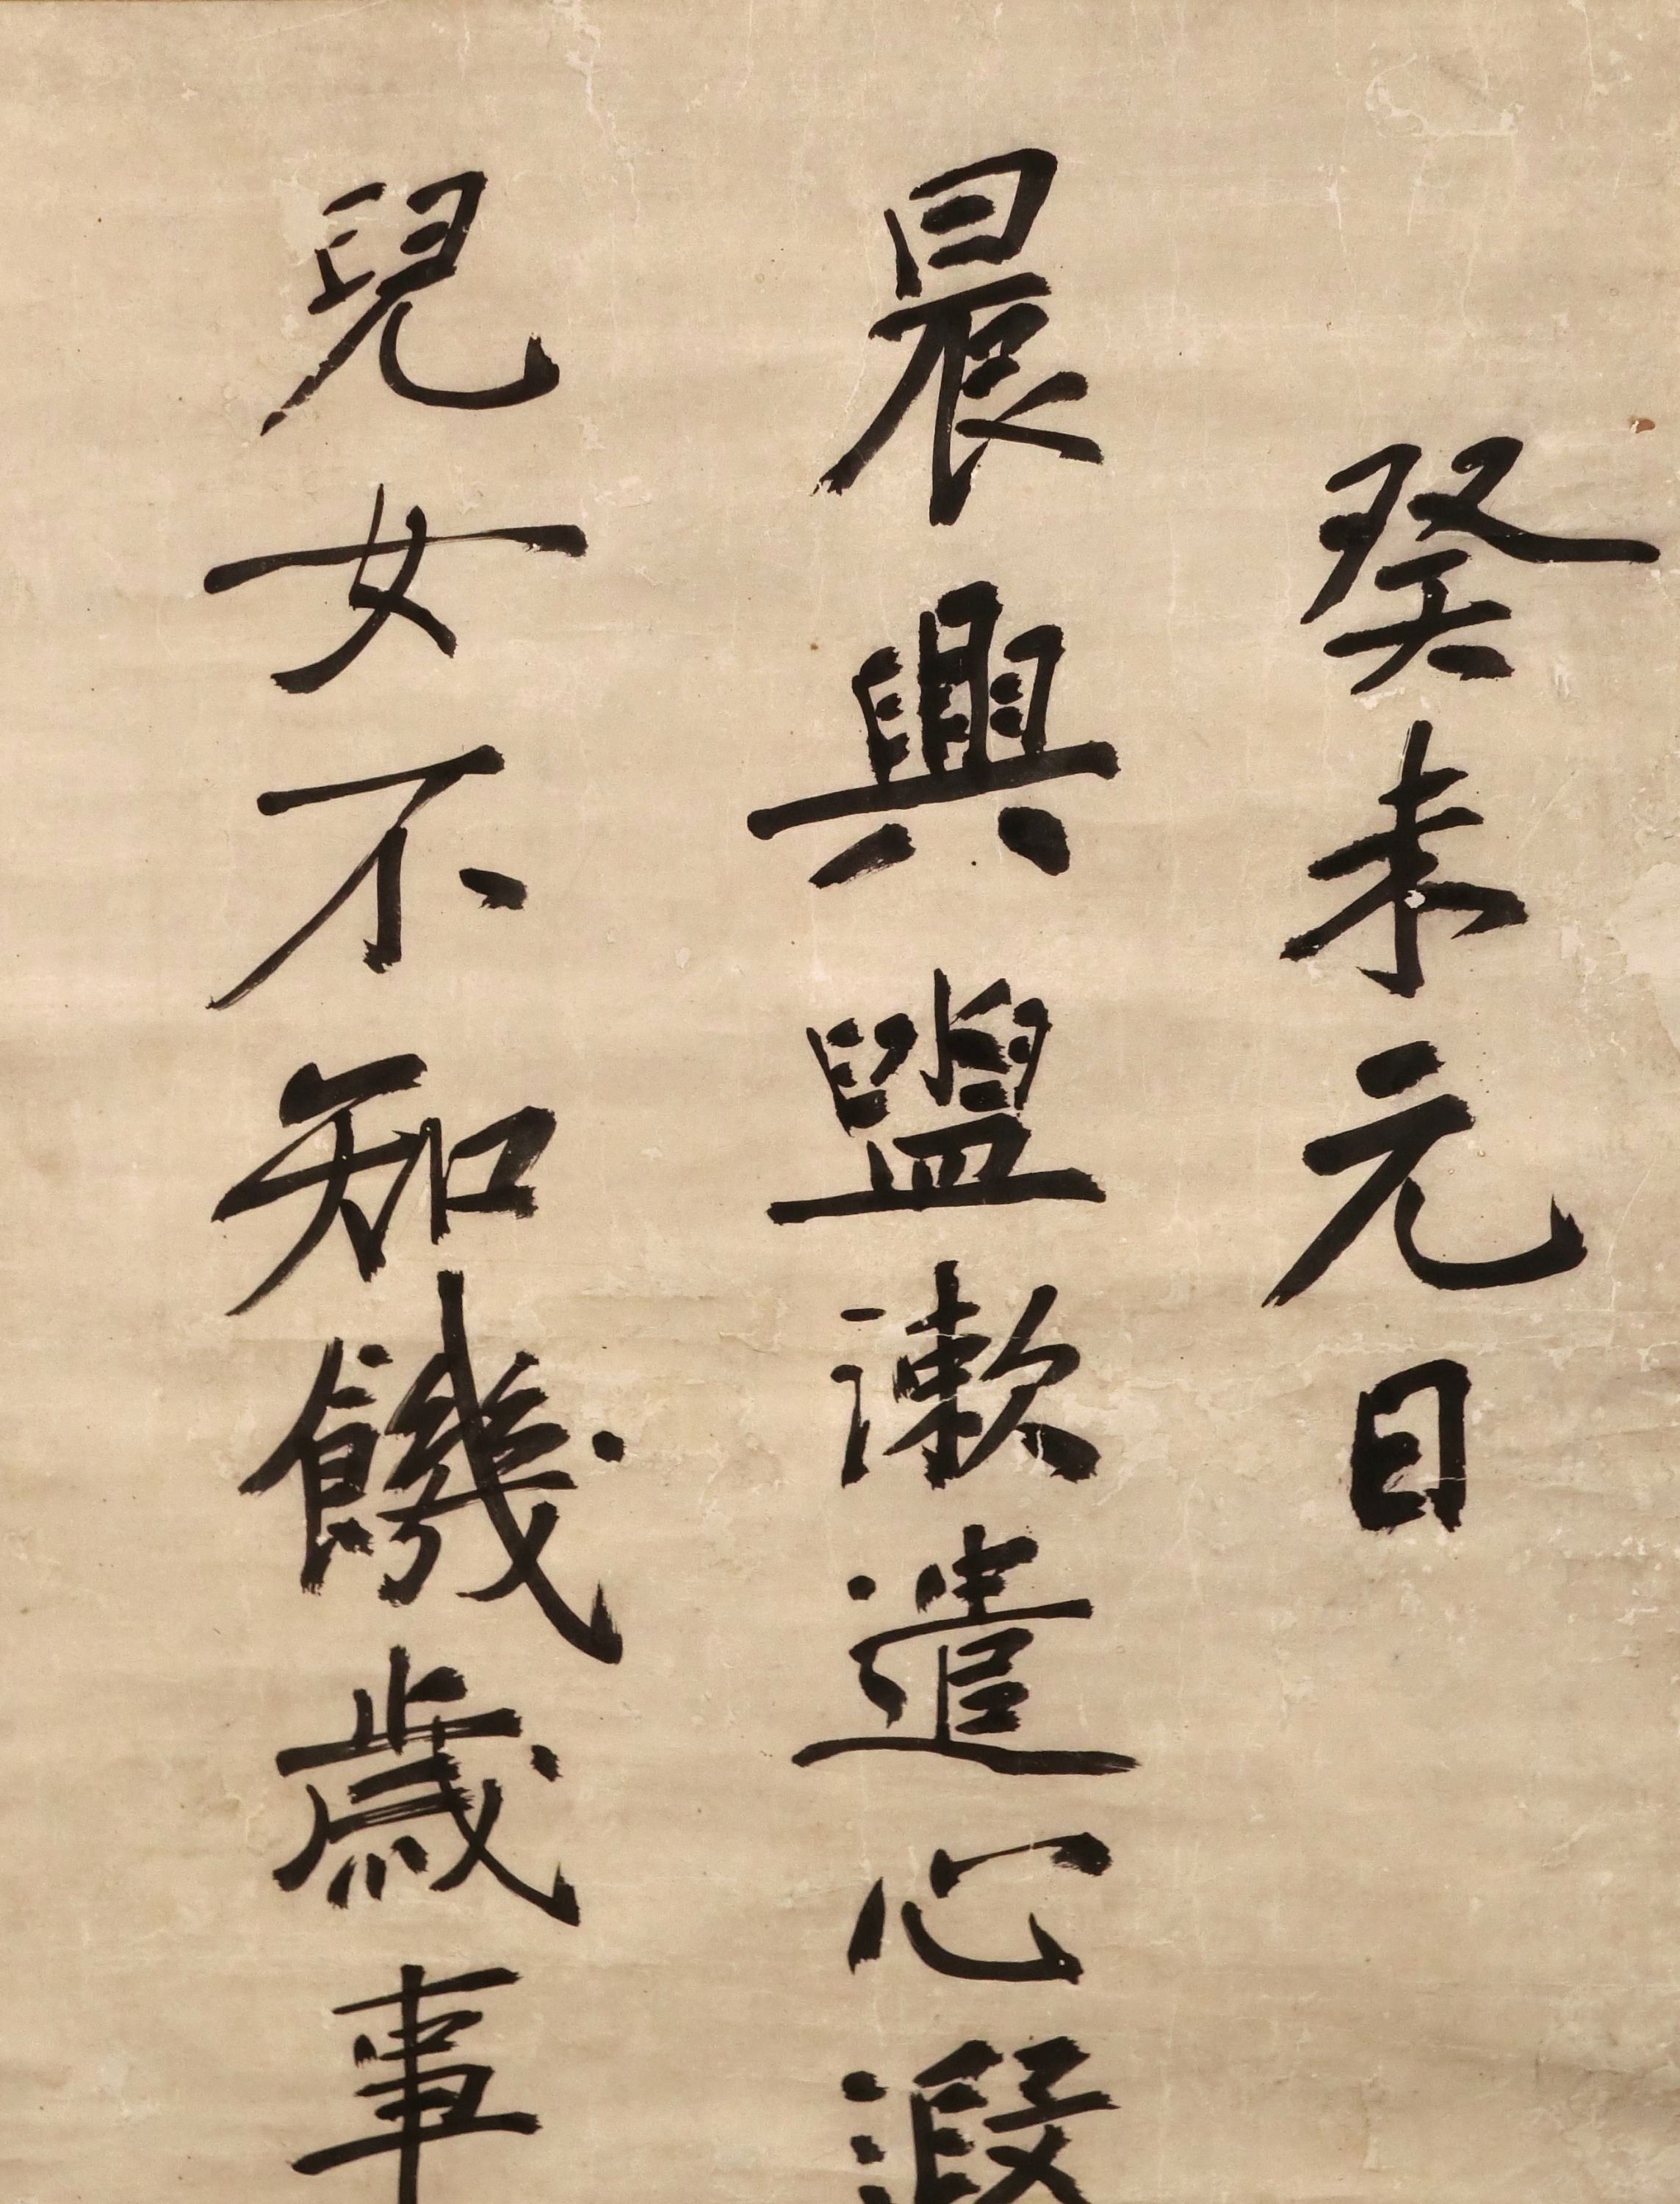 癸未元日
晨興盥漱遣心遐
兒女不知饑歲事